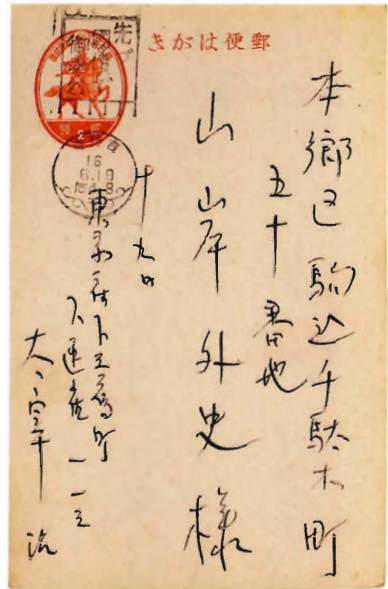 郵便はがき
本郷区駒込千駄木町
五十番地
山岸外史様
十九日
東京府下三鷹町
下連雀一一三
太宰治